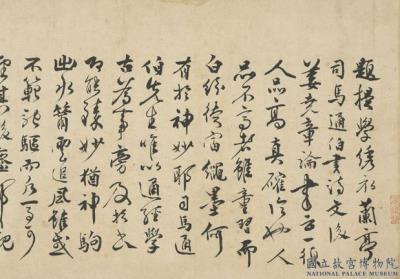 題提學綉衣蘭亭
司馬通伯書詩文後
姜堯章論書云一須
人品高真確論也人
品不高者雖童習而
白紛倚宙繩墨何
有於神妙耶司馬通
伯先生唯以通經學
古為事旁及於書
即能臻妙猶神駒
出水籋雲追風雖或
不範馳驅而乃一日可
國立故宮博物院
NATIONAL PALACE MUSEUM